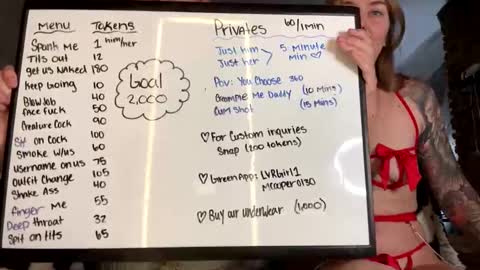 Menu Tokens
Spank Me 1 him/her
Tits out 12
get us Naked 180
Keep Going 10
Blowjob 40
face fuck 50
Creature Cock 90
Sit on Cock 100
Smoke w/us 60
username on us 75
Outfit Change 105
Shake Ass 40
Finger Me 55
Deep throat 32
Spit on tits 65
Goal
2,000
Privates 60/1min
Just him
Just her
5 minute
Min ♡
Pov: You Choose 360
Creampie Me Daddy (10 mins)
Cum Shot (15 mins)
♡ For Custom inquries
Snap (200 tokens)
♡ GreenApp: LVRgirl1
Mcooper0130
♡ Buy our underwear (1,000)